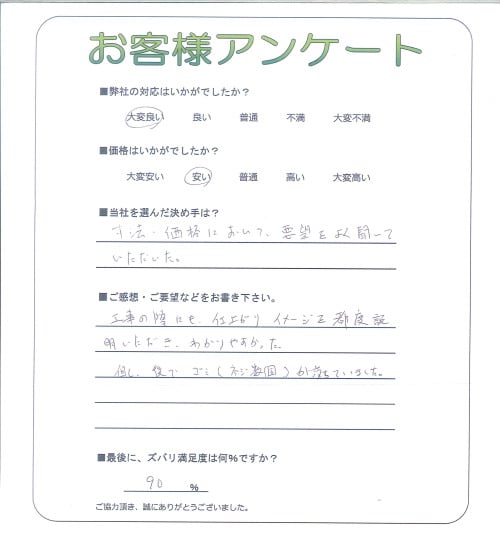 お客様アンケート
■弊社の対応はいかがでしたか？
大変良い 良い 普通 不満 大変不満
■価格はいかがでしたか？
大変安い 安い 普通 高い 大変高い
■当社を選んだ決め手は？
寸法・価格において、要望をよく聞いて
いただいた。
■ご感想・ご要望などをお書き下さい。
工事の際にも、仕上がりイメージを都度説
明いただき、わかりやすかった。
但し、後で ゴミ(ネジ数個)が落ちていました。
■最後に、ズバリ満足度は何%ですか？
90 %
ご協力頂き、誠にありがとうございました。